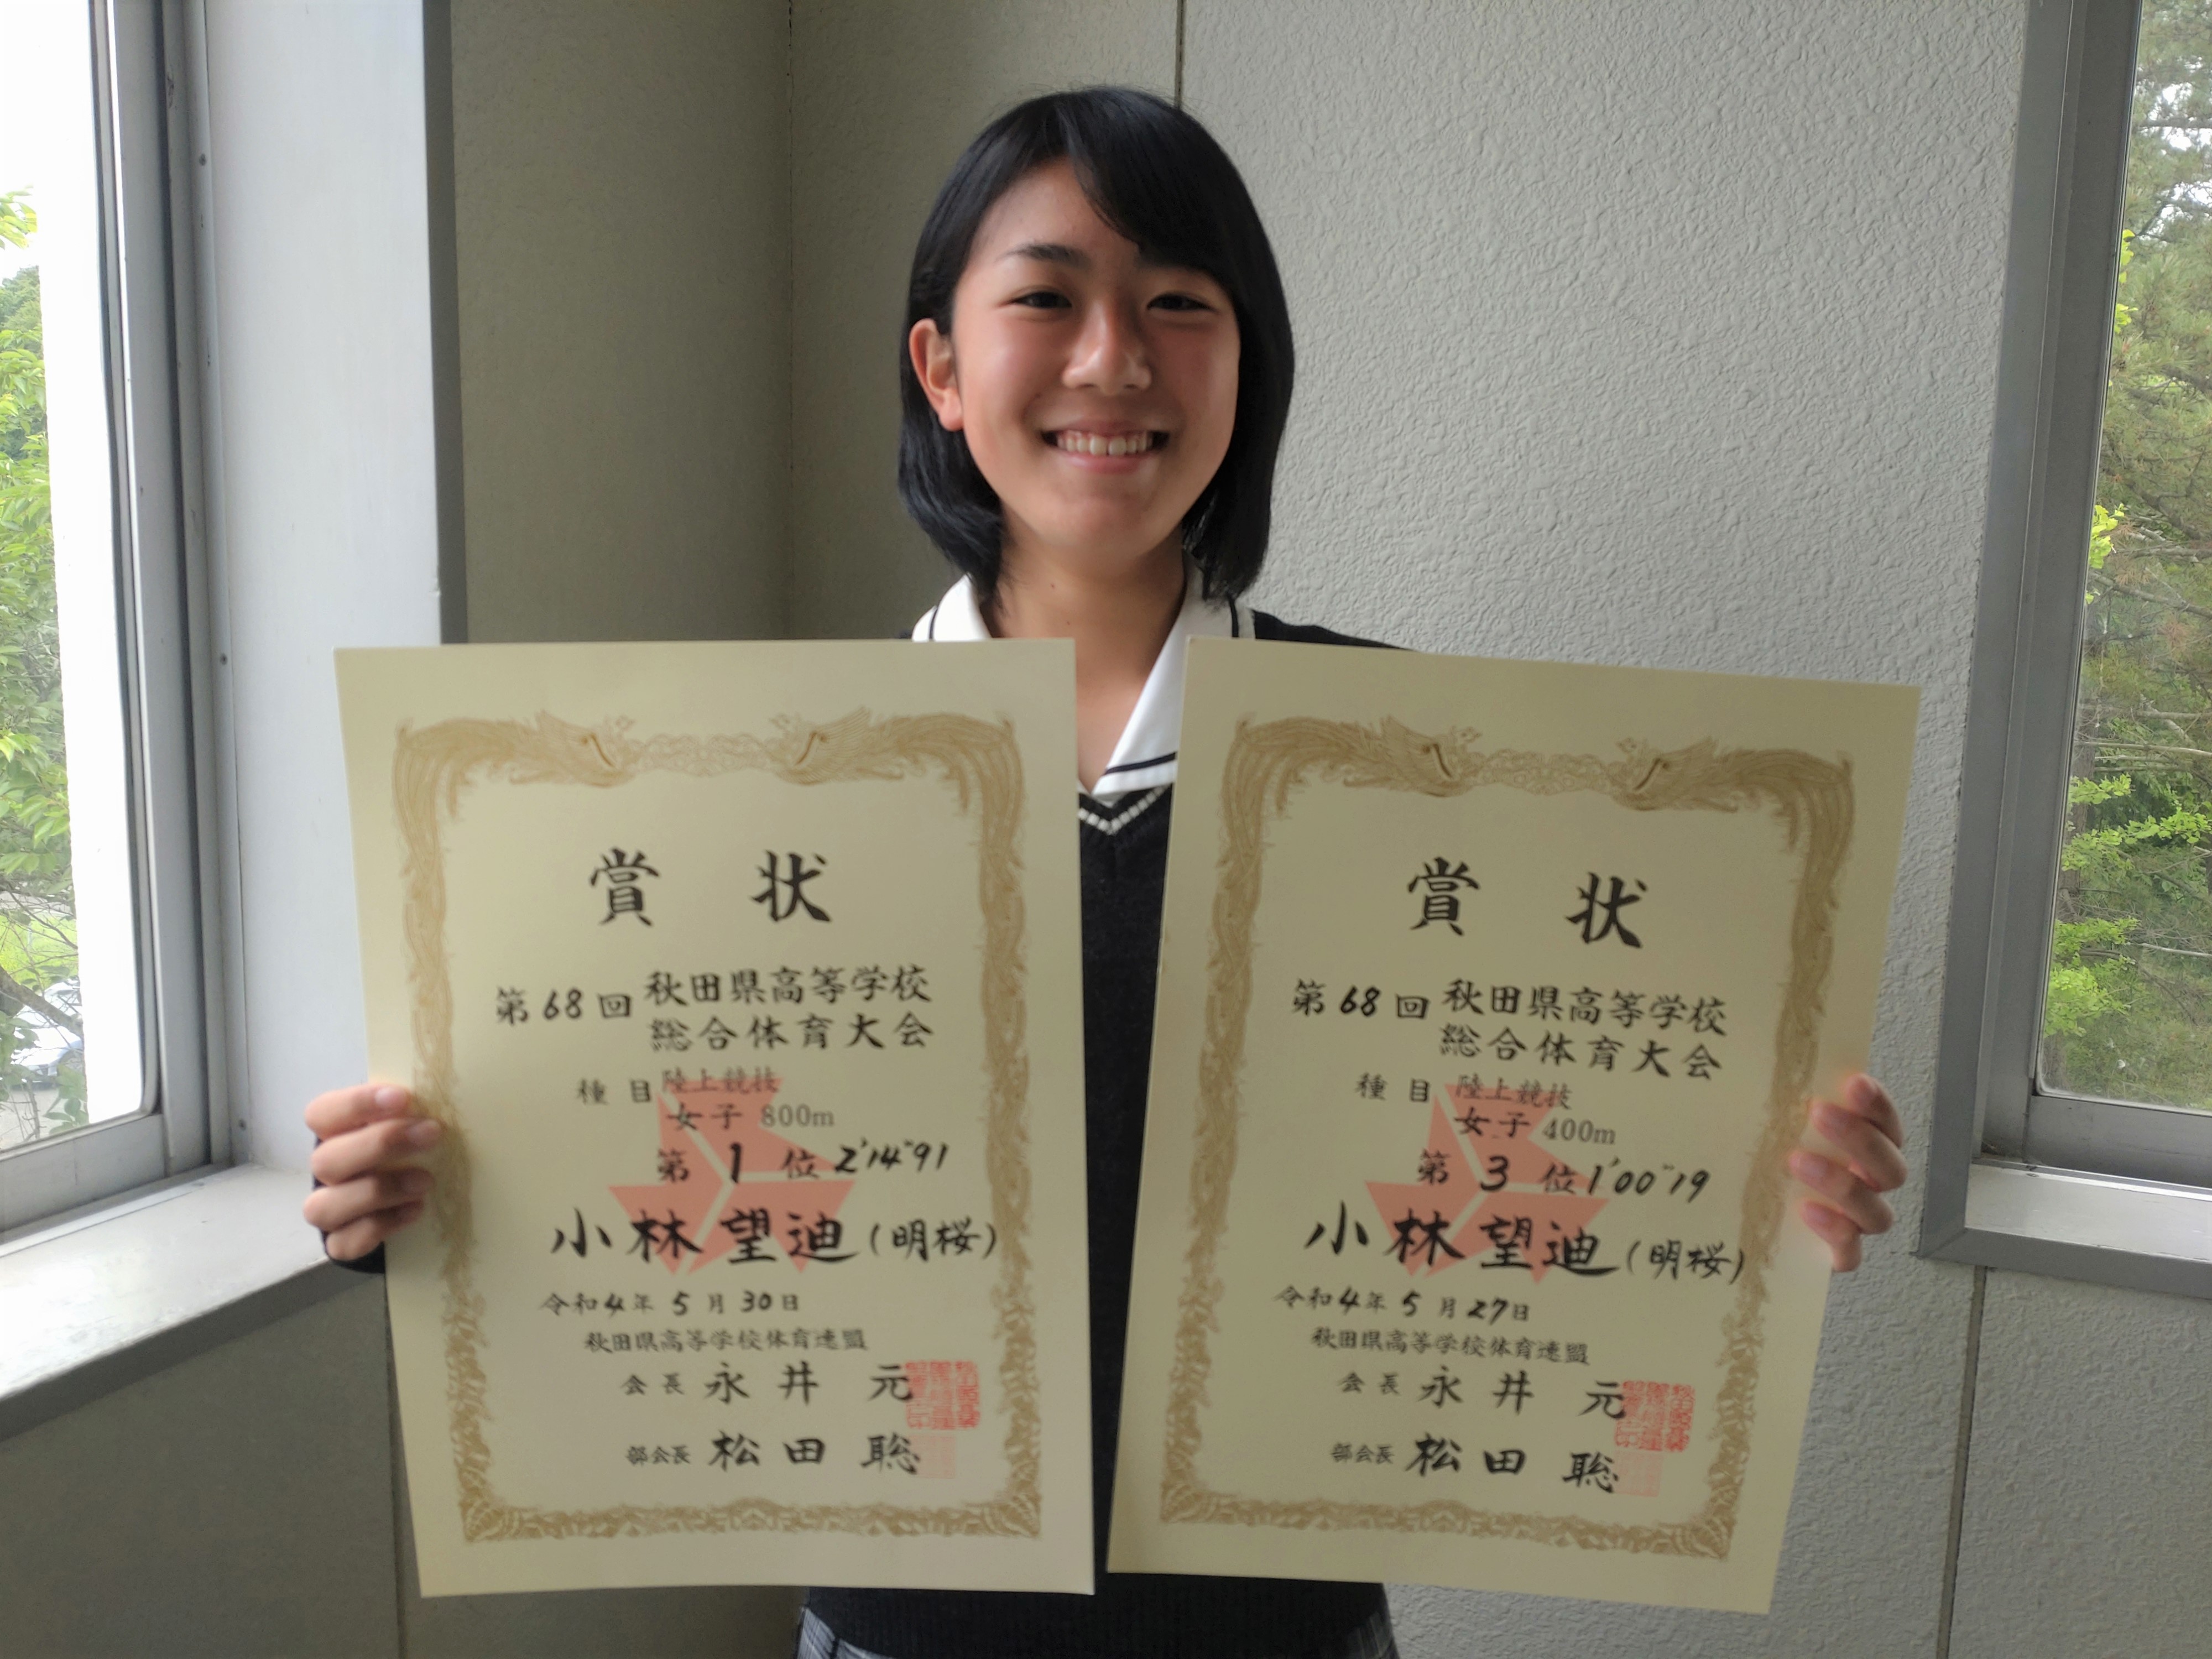 賞状
第68回 秋田県高等学校
総合体育大会
種目 陸上競技
女子 800m
第1位 2'14"91
小林望迪(明桜)
令和4年5月30日
秋田県高等学校体育連盟
会長 永井 元
部会長 松田 聡
賞状
第68回 秋田県高等学校
総合体育大会
種目 陸上競技
女子 400m
第3位 1'00"19
小林望迪(明桜)
令和4年5月27日
秋田県高等学校体育連盟
会長 永井 元
部会長 松田 聡